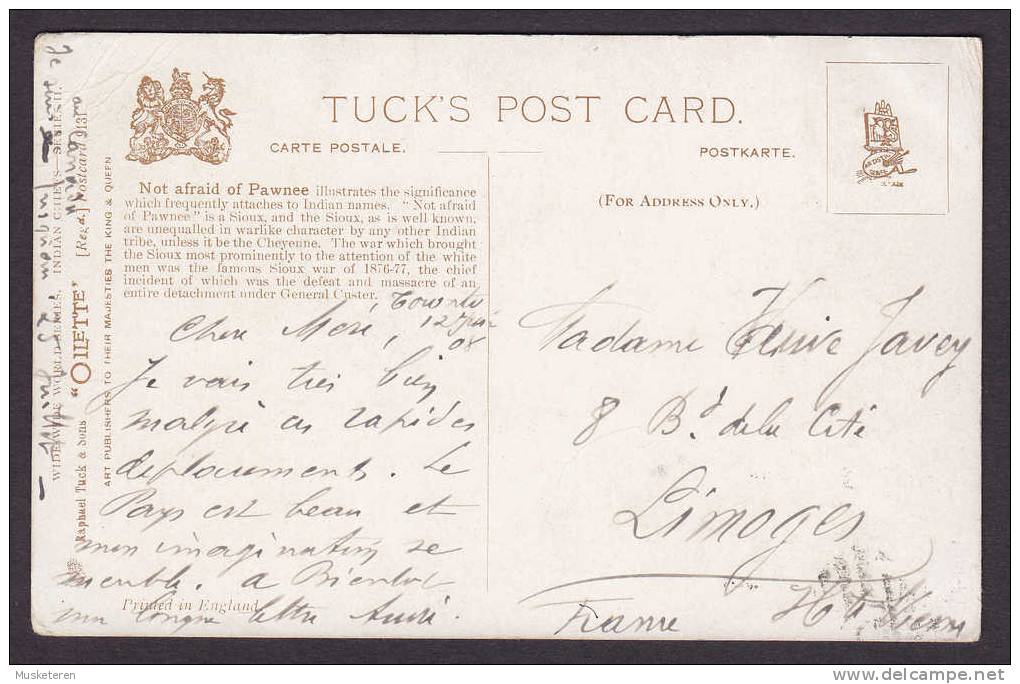 TUCK'S POST CARD.
CARTE POSTALE.
POSTKARTE.
(FOR ADDRESS ONLY.)
Not afraid of Pawnee illustrates the significance
which frequently attaches to Indian names. "Not afraid
of Pawnee" is a Sioux, and the Sioux, as is well known,
are unequalled in warlike character by any other Indian
tribe, unless it be the Cheyenne. The war which brought
the Sioux most prominently to the attention of the white
men was the famous Sioux war of 1876-77, the chief
incident of which was the defeat and massacre of an
entire detachment under General Custer.
Toronto
12
08
Chere Mère,
Je vais très bien
malgré ces rapides
deplacements. Le
Pays est beau et
mon imagination se
meuble. A Bientot
une longue lettre
Printed in England
Madame Javey
8 Bd. de la Cité
Limoges
Hte Vienne
France
WIDE-WIDE-WORLD SERIES. INDIAN CHIEFS SERIES II.
Raphael Tuck & Sons "OILETTE" [Regd.] Postcard 9131
ART PUBLISHERS TO THEIR MAJESTIES THE KING & QUEEN
Je suis
au Canada
Musketeren
delcampe.net